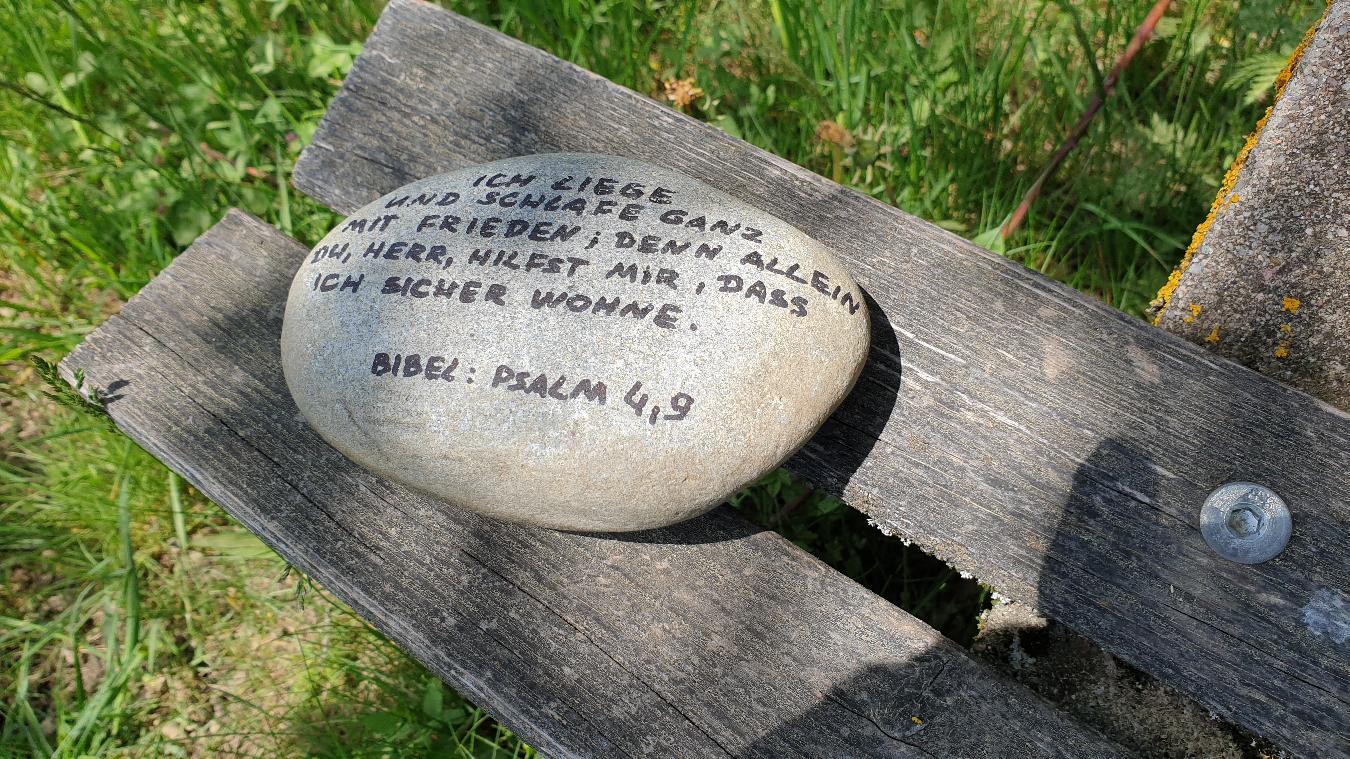 ICH LIEGE
UND SCHLAFE GANZ
MIT FRIEDEN; DENN ALLEIN
DU, HERR, HILFST MIR, DASS
ICH SICHER WOHNE.
BIBEL: PSALM 4,9